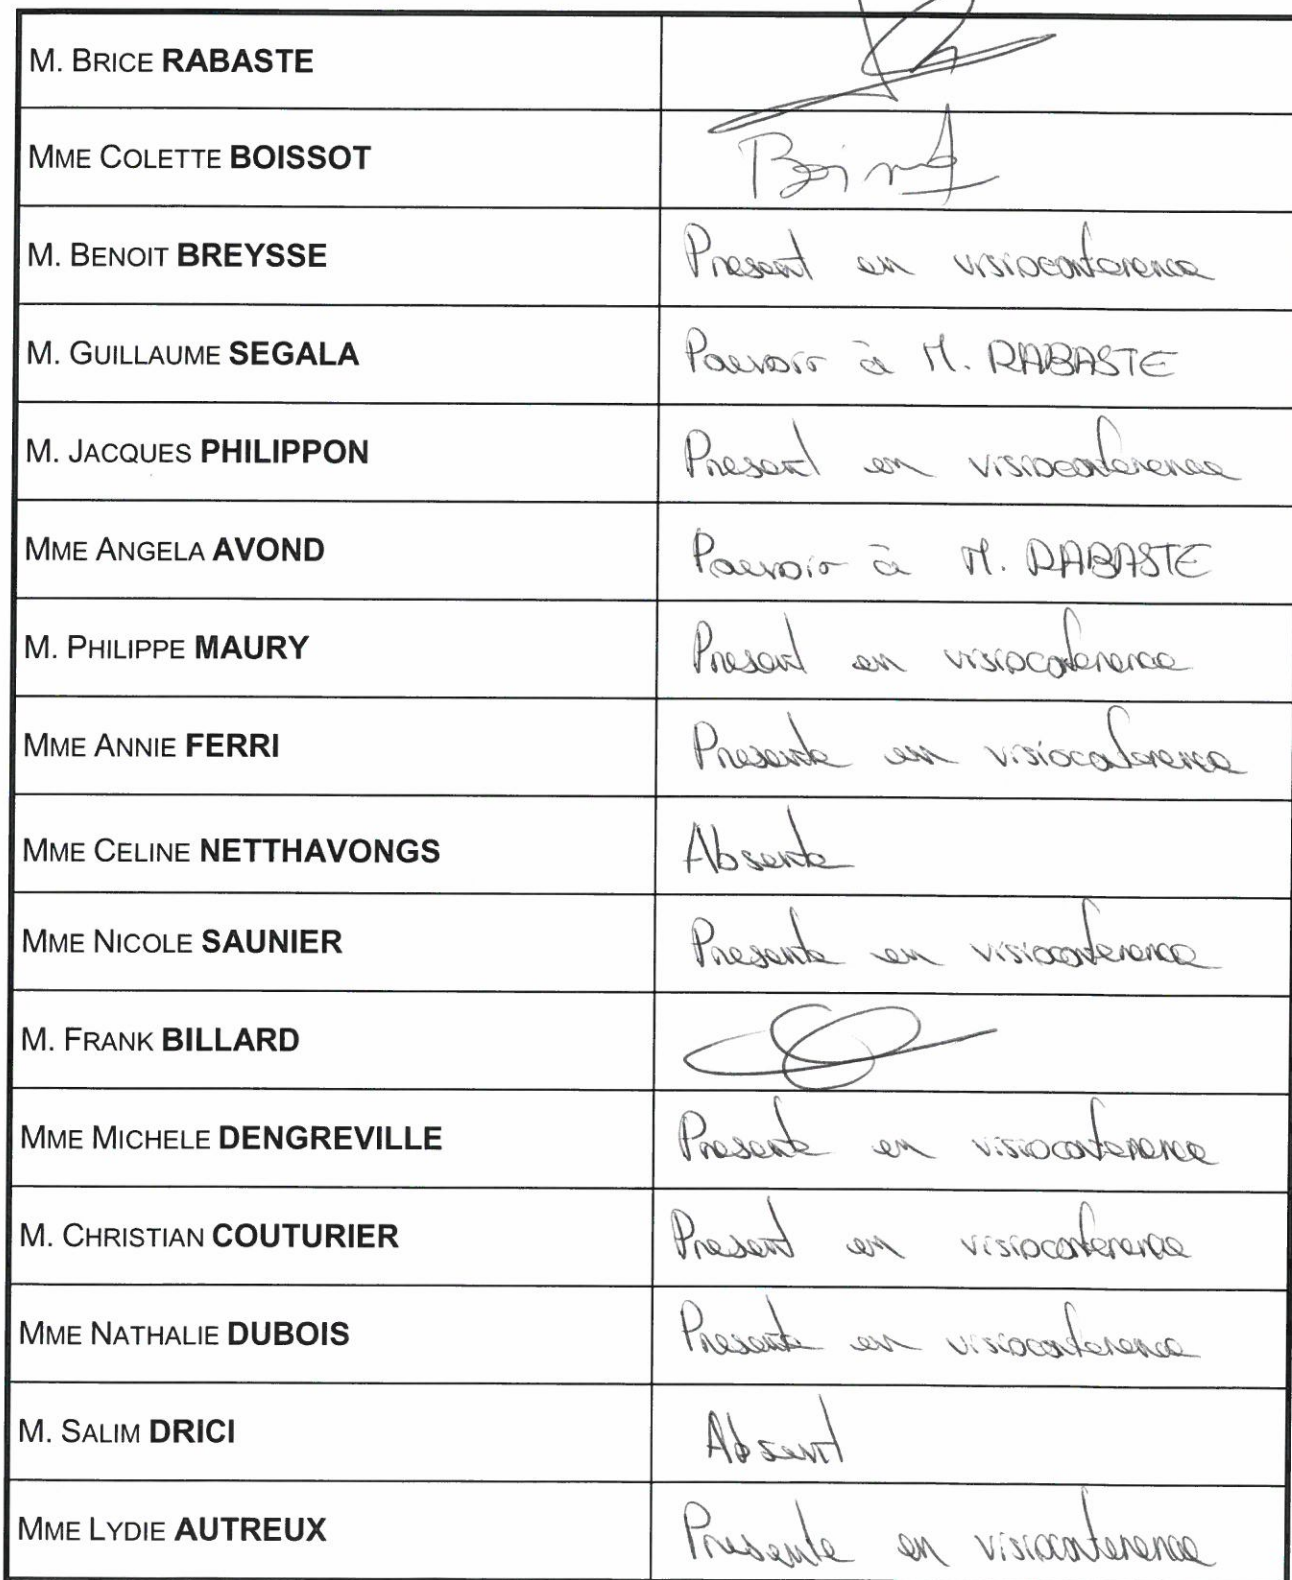 M. BRICE RABASTE
MME COLETTE BOISSOT
M. BENOIT BREYSSE Present en visioconference
M. GUILLAUME SEGALA Pouvoir à M. RABASTE
M. JACQUES PHILIPPON Present en visioconference
MME ANGELA AVOND Pouvoir à M. RABASTE
M. PHILIPPE MAURY Present en visioconference
MME ANNIE FERRI Presente en visioconference
MME CELINE NETTHAVONGS Absente
MME NICOLE SAUNIER Presente en visioconference
M. FRANK BILLARD
MME MICHELE DENGREVILLE Presente en visioconference
M. CHRISTIAN COUTURIER Present en visioconference
MME NATHALIE DUBOIS Presente en visioconference
M. SALIM DRICI Absent
MME LYDIE AUTREUX Presente en visioconference